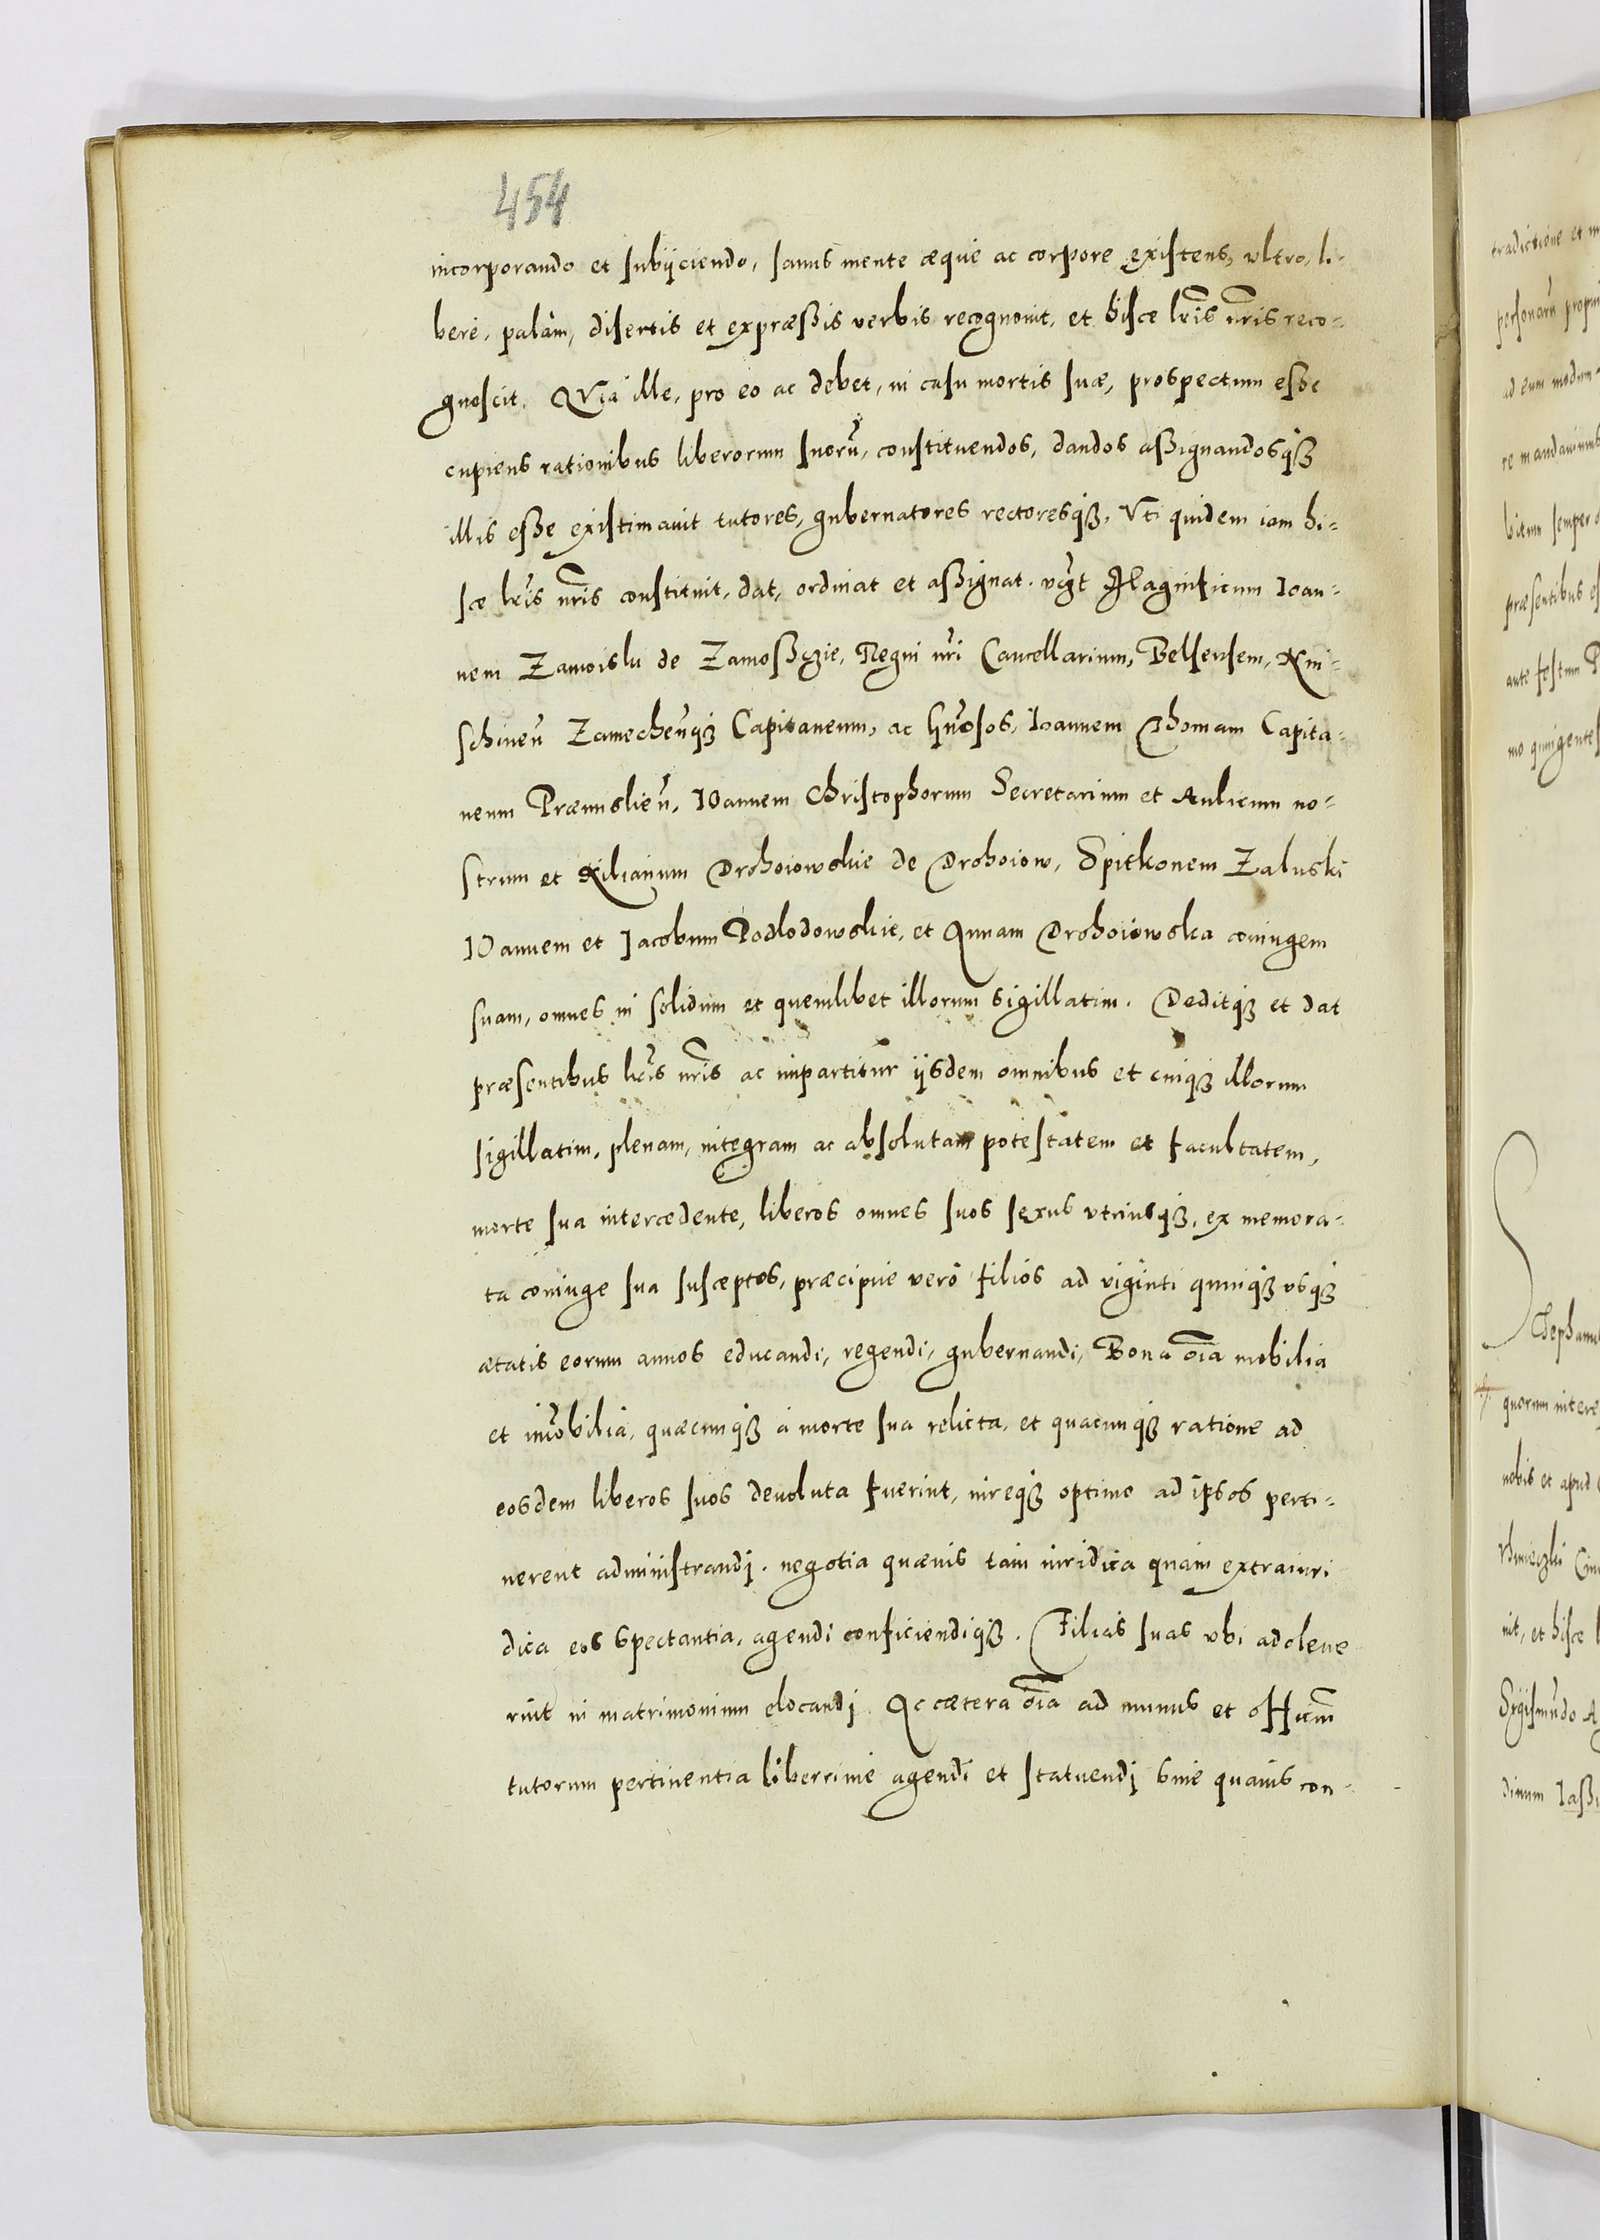 454
incorporando et subijciendo, sanus mente æque ac corpore existens, vltro, li-
berè, palàm, disertis et expræssis verbis recognouit, et hisce lr̃is nr̃is reco-
gnoscit. Qvia ille, pro eo ac debet, in casu mortis suæ, prospectum esse
cupiens rationibus liberorum suorũ, constituendos, dandos assignandosqꝫ
illis esse existimauit tutores, gubernatores rectoresqꝫ. Vti quidem iam hi-
sce lr̃is nr̃is constituit, dat, ordinat et assignat. vcz̃t Magnificum Ioan-
nem Zamoiski de Zamosczie, Regni nr̃i Cancellarium, Belsensem, Kni-
schineñ Zamecheñqꝫ Capitaneum, ac Gñosos, Ioannem Thomam Capita-
neum Præmislieñ, Ioannem Christophorum Secretarium et Aulicum no-
strum et Kilianum Drohoiowskie de Drohoiow, Spitkonem Zaluski
Ioannem et Jacobum Podlodowskie, et Annam Drohoiowska coniugem
suam, omnes in solidum et quemlibet illorum sigillatim. Deditqꝫ et dat
præsentibus lr̃is nr̃is ac impartitur ijsdem omnibus et cuiqꝫ illorum
sigillatim, plenam, integram ac absolutam potestatem et facultatem,
morte sua intercedente, liberos omnes suos sexus vtriusqꝫ, ex memora-
ta coniuge sua susceptos, præcipue verò filios ad viginti quinqꝫ vsqꝫ
ætatis eorum annos educandi, regendi, gubernandi, Bona oĩa mobilia
et im̃obilia, quæcunqꝫ à morte sua relicta, et quacunqꝫ ratione ad
eosdem liberos suos deuoluta fuerint, iureqꝫ optimo ad ipsos perti-
nerent administrandi. negotia quæuis tam iuridica quàm extraiuri
dica eos spectantia, agendi conficiendiqꝫ. Filias suas vbi adoleue
rint in matrimonium elocandi. Ac cætera oĩa ad munus et officiũ
tutorum pertinentia liberrime agendi et statuendi sine quauis con-
tradictione et
personarũ
ad eum modum
re mandauimus
bitum semper
præsentibus
ante festum
mo quingentes
Stephanus
quorum intere
nobis et apud
nit, et hisce
Sigismũdo